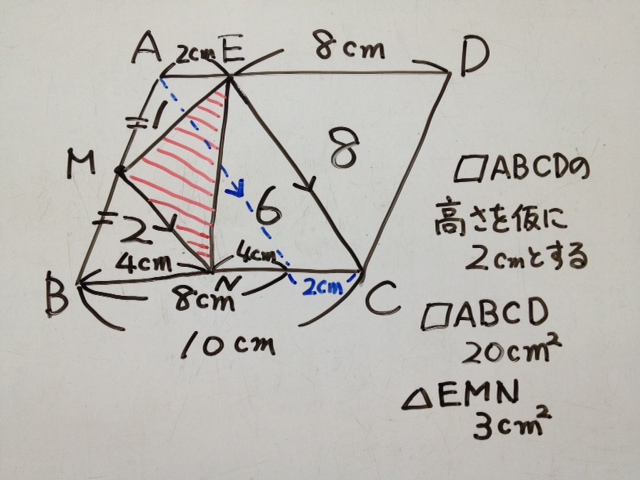 A 2cm E 8cm D
1
M
8
6
2
4cm 4cm
B 8cm N 2cm C
10cm
▱ABCDの
高さを仮に
2cmとする
▱ABCD
20cm²
△EMN
3cm²